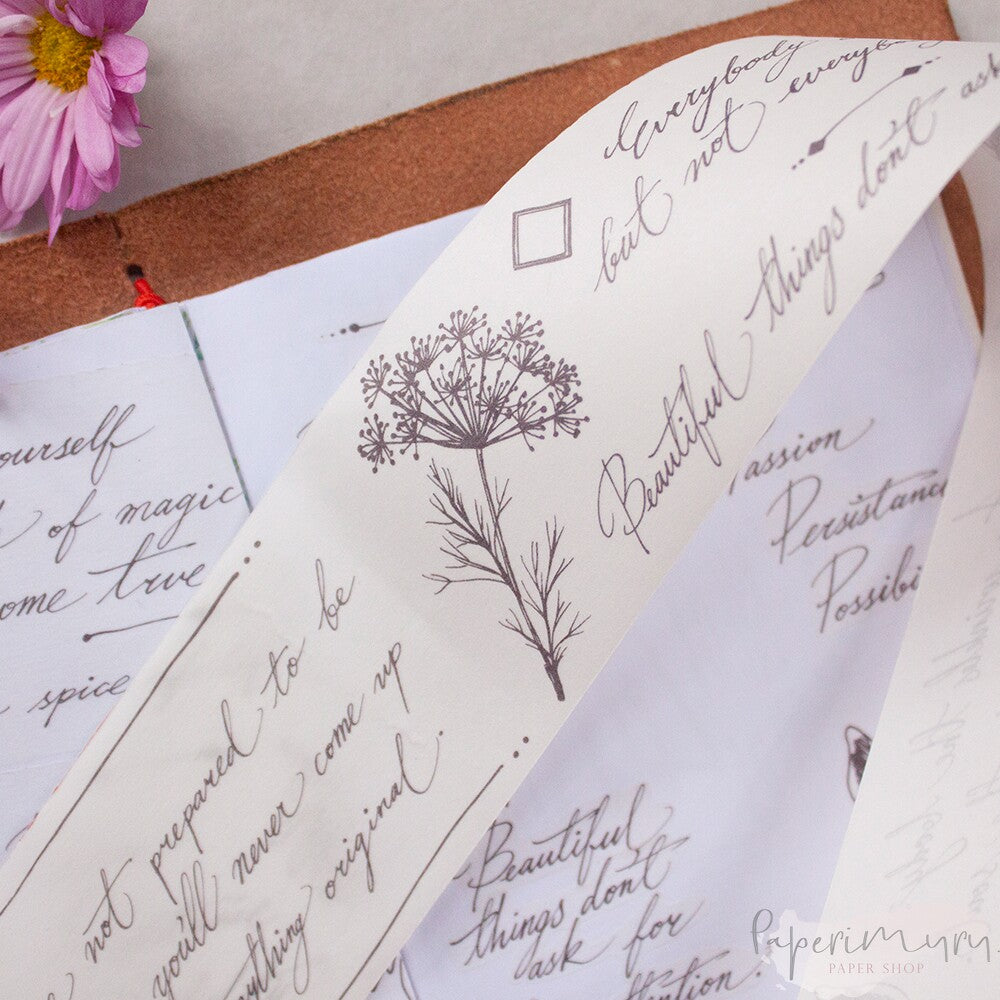 Everybody
but not everybody
Beautiful things don't ask
not prepared to be
you'll never come up
original.
ourself
of magic
ome true
spice
assion
Persistanc
Possibi
Beautiful
things don't
ask for
ttention.
PaperiMyry.
PAPER SHOP